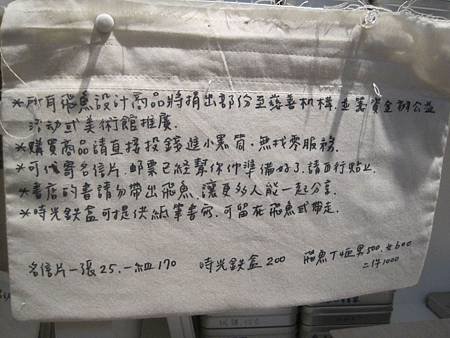 *所有飛魚設計商品將捐出部份至慈善机構.並籌資金辦公益
活動或美術館推廣.
*購買商品請直接投錢進小黑筒,無找零服務.
*可代寄名信片.郵票已經幫你们準備好了.請自行貼上.
*書店的書請勿帶出飛魚,讓更多人能一起分享.
*時光鉄盒可提供紙筆書寫,可留在飛魚或帶走.
名信片一張25.一組170 時光鉄盒 200 飛魚T恤男500.女600
二件1000